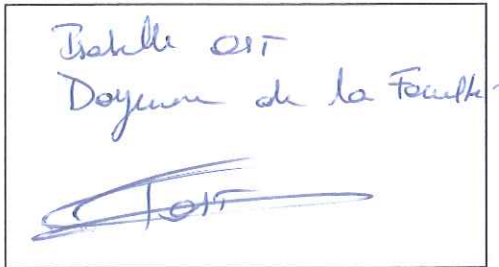 Isabelle OST
Doyenne de la Faculté
OST